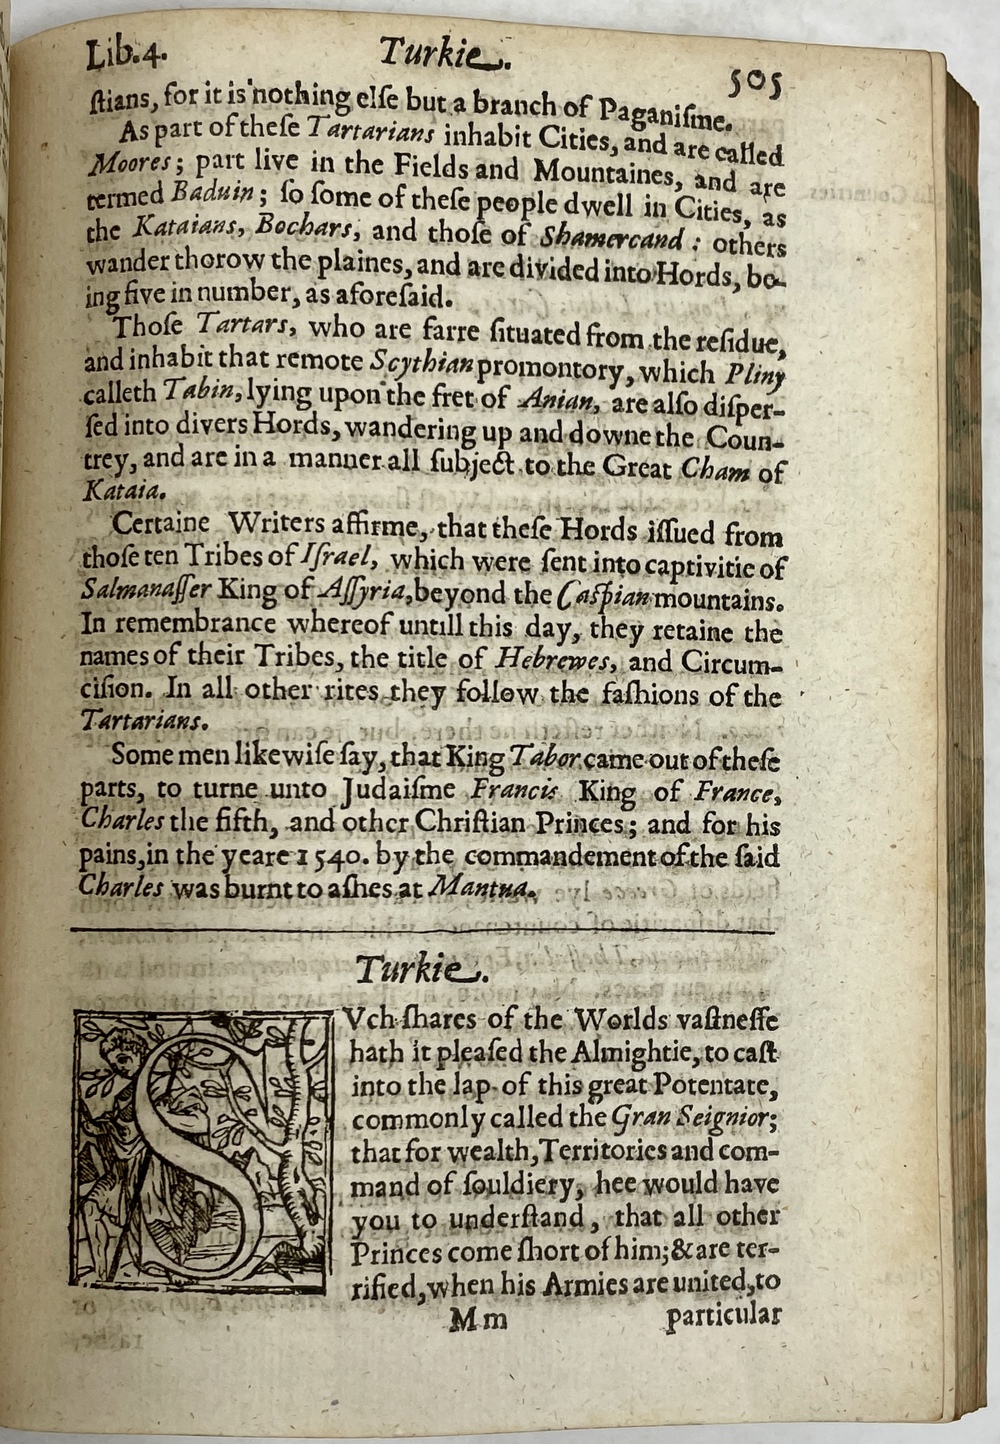 Lib.4. Turkie. 505
ſtians, for it is nothing elſe but a branch of Paganiſme.
As part of theſe Tartarians inhabit Cities, and are called
Moores; part live in the Fields and Mountaines, and are
termed Baduin; ſo ſome of theſe people dwell in Cities, as
the Kataians, Bochars, and thoſe of Shamercand: others
wander thorow the plaines, and are divided into Hords, be-
ing five in number, as aforeſaid.
Thoſe Tartars, who are farre ſituated from the reſidue,
and inhabit that remote Scythian promontory, which Pliny
calleth Tabin, lying upon the fret of Anian, are alſo diſper-
ſed into divers Hords, wandering up and downe the Coun-
trey, and are in a manner all ſubject to the Great Cham of
Kataia.
Certaine Writers affirme, that theſe Hords iſſued from
thoſe ten Tribes of Iſrael, which were ſent into captivitie of
Salmanaſſer King of Aſſyria, beyond the Caſpian mountains.
In remembrance whereof untill this day, they retaine the
names of their Tribes, the title of Hebrewes, and Circum-
ciſion. In all other rites they follow the faſhions of the
Tartarians.
Some men likewiſe ſay, that King Tabor came out of theſe
parts, to turne unto Judaiſme Francis King of France,
Charles the fifth, and other Chriſtian Princes; and for his
pains, in the yeare 1540. by the commandement of the ſaid
Charles was burnt to aſhes at Mantua.
Turkie.
SVch ſhares of the Worlds vaſtneſſe
hath it pleaſed the Almightie, to caſt
into the lap of this great Potentate,
commonly called the Gran Seignior;
that for wealth, Territories and com-
mand of ſouldiery, hee would have
you to underſtand, that all other
Princes come ſhort of him; & are ter-
rified, when his Armies are united, to
Mm particular